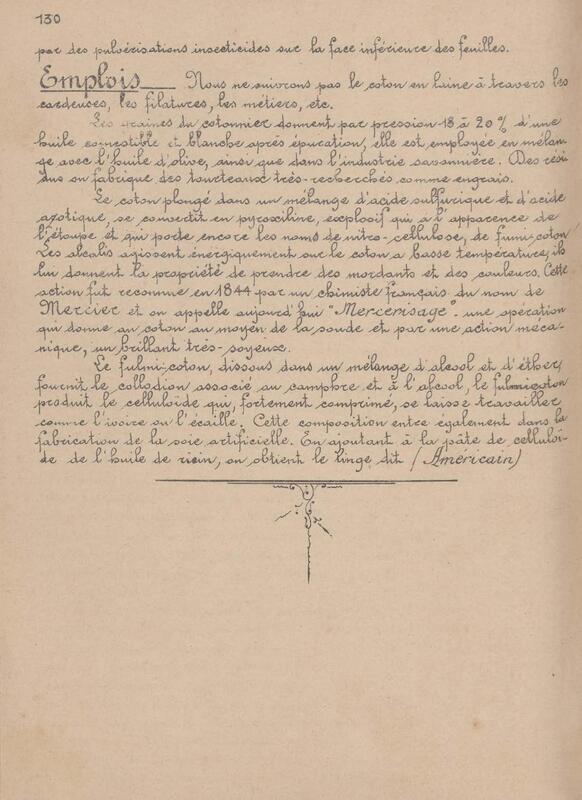 130
par des pulvérisations insecticides sur la face inférieure des feuilles.
Emplois___ Nous ne suivrons pas le coton en laine à travers les
cardeuses, les filatures, les métiers, etc.
Les graines du cotonnier donnent par pression 18 à 20 % d'une
huile comestible et blanche après épuration, elle est employée en mélan-
ge avec l'huile d'olive, ainsi que dans l'industrie savonnière. Des rési
dus on fabrique des tourteaux très-recherchés comme engrais.
Le coton plongé dans un mélange d'acide sulfurique et d'acide
azotique, se convertit en pyroxiline, explosif qui a l'apparence de
l'étoupe et qui porte encore les noms de nitro-cellulose, de fumi-coton
Les alcalis agissent énergiquement sur le coton a basse température, ils
lui donnent la propriété de prendre des mordants et des couleurs. Cette
action fut reconnue en 1844 par un chimiste français du nom de
Mercier et on appelle aujourd'hui "Mercerisage". une opération
qui donne au coton au moyen de la soude et par une action méca-
nique, un brillant très-soyeux.
Le fulmi-coton, dissous dans un mélange d'alcool et d'éther,
fournit le collodion associé au camphre et à l'alcool, le fulmicoton
produit le celluloïde qui, fortement comprimé, se laisse travailler
comme l'ivoire ou l'écaille. Cette composition entre également dans la
fabrication de la soie artificielle. En ajoutant à la pâte de celluloï-
de de l'huile de ricin, on obtient le linge dit (Américain)